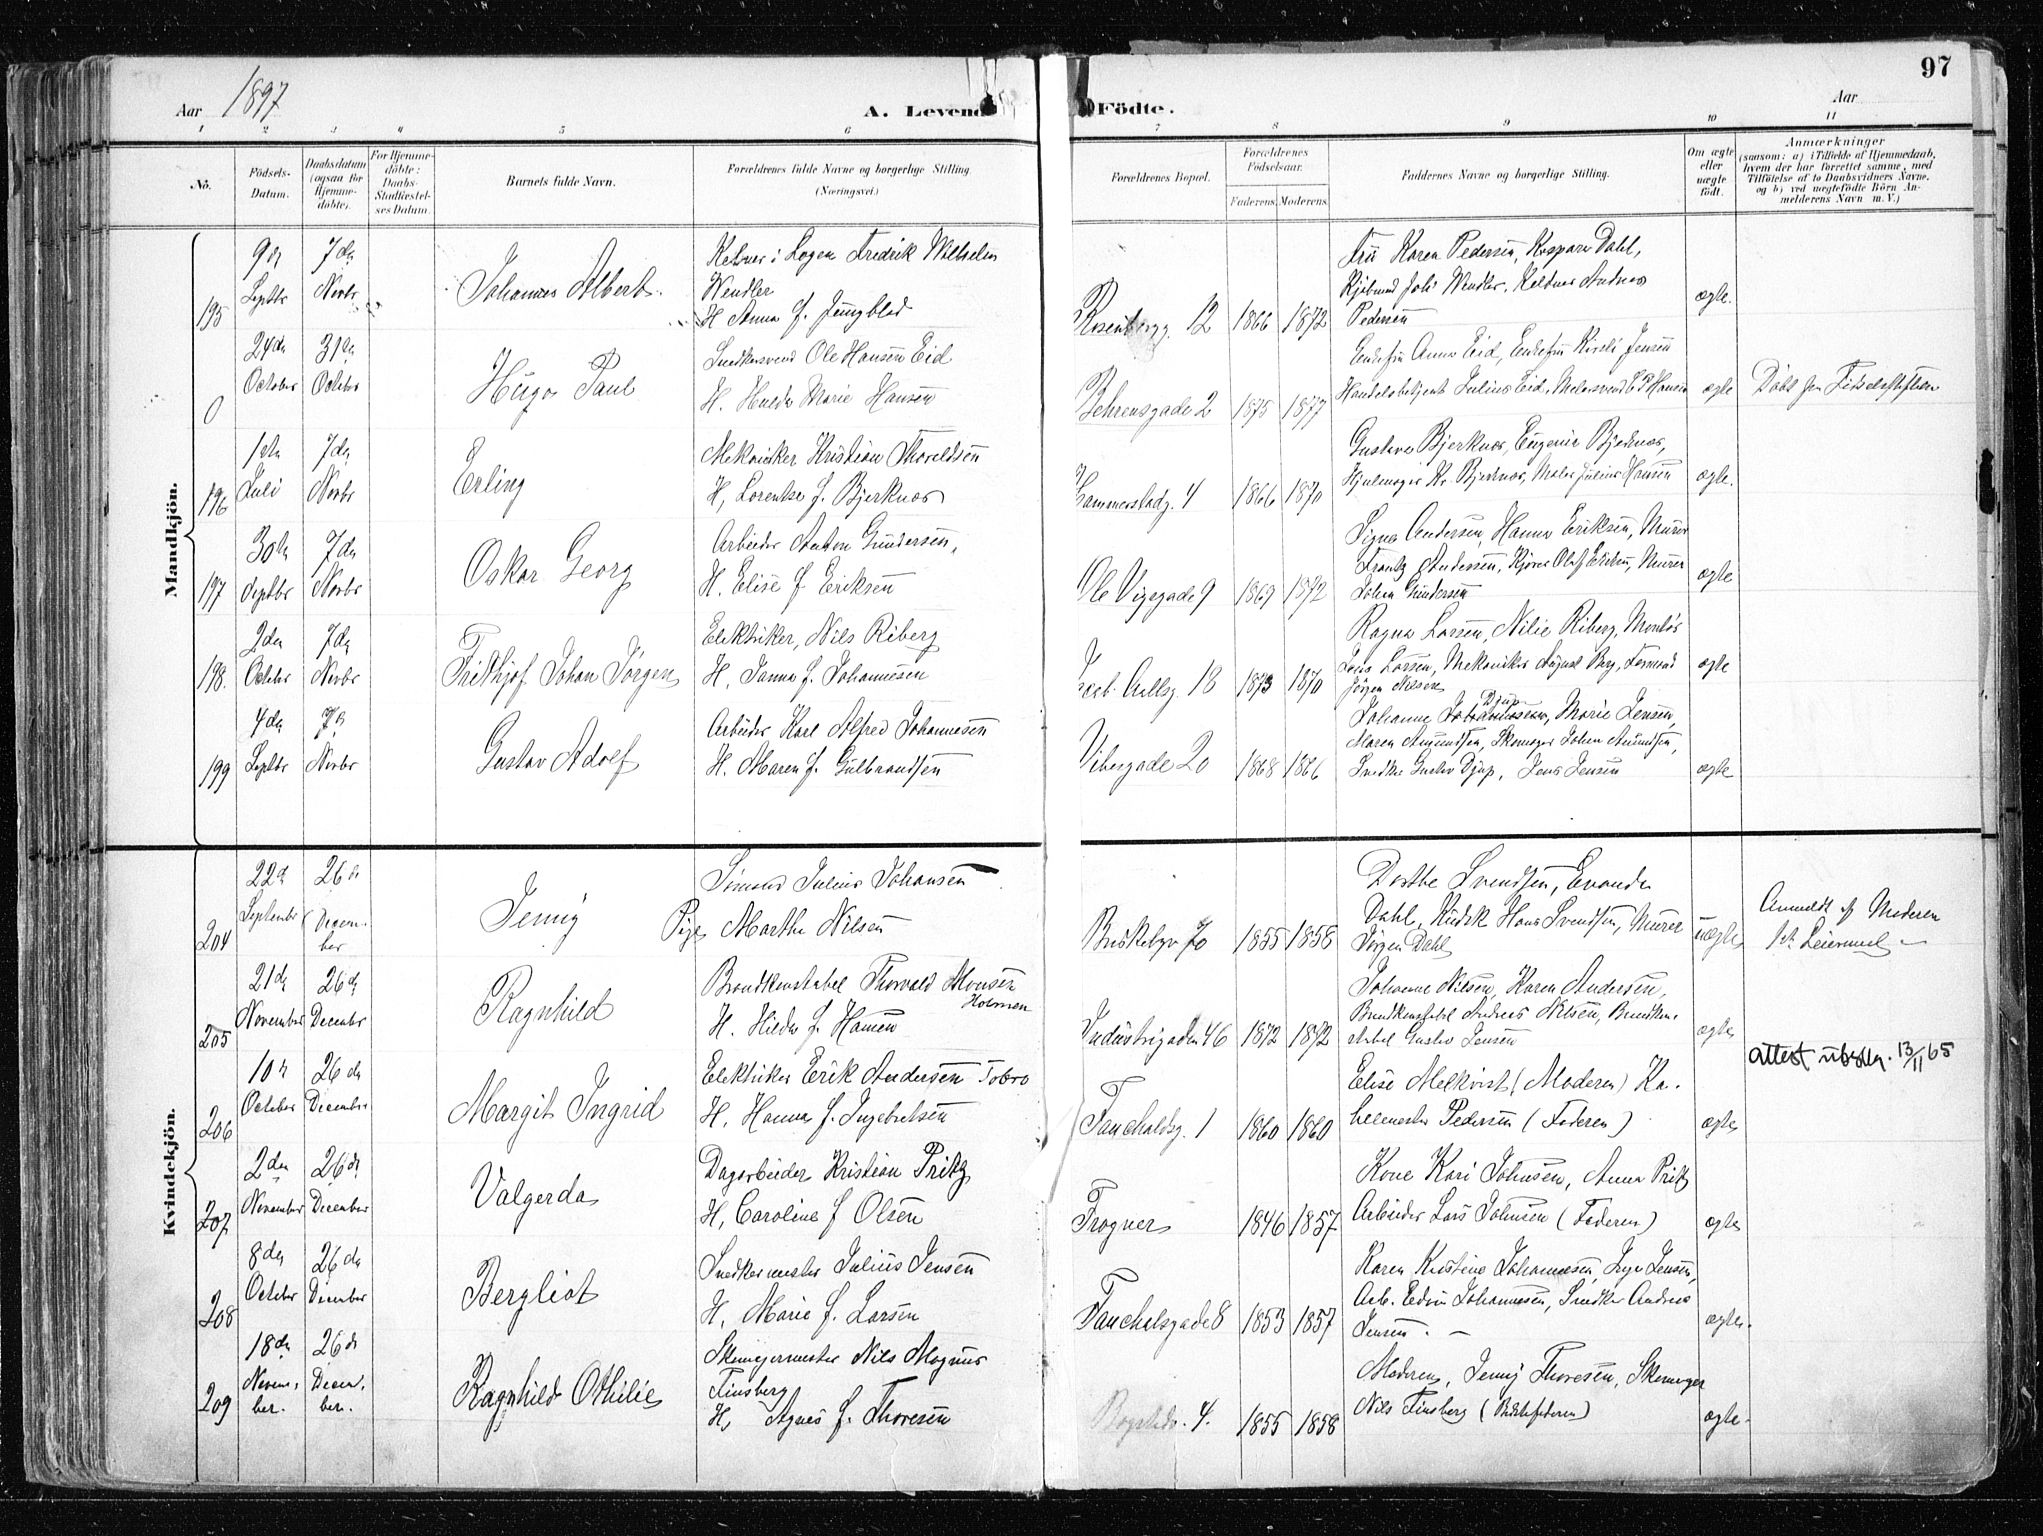 97
Aar 1897
A. Levende
Födte.
Aar
1 2 3 4 5 6 7 8 9 10 11
No.
Födsels-
Datum.
Daabsdatum
(ogsaa for
Hjemme-
döbte).
For Hjemme-
döbte:
Daabs-
Stadfæstel-
ses Datum.
Barnets fulde Navn.
Forældrenes fulde Navne og borgerlige Stilling.
(Næringsvei.)
Forældrenes Bopæl.
Forældrenes
Födselsaar.
Faderens. Moderens.
Faddernes Navne og borgerlige Stilling.
Om ægte
eller
uægte
födt.
Anmærkninger
(saasom: a) i Tilfælde af Hjemmedaab,
hvem der har forrettet samme, med
Tilföielse af to Daabsvidners Navne,
og b) ved uægtefödte Börn An-
melderens Navn m. V.)
Mandkjön.
195
9de
Septbr
7de
Novbr
Johannes Albert
Kelner i Logen Fredrik Wilhelm
Wendler
H Anna f. Jungblad
Rosenborgg. 12
1866 1872
Fru Karen Pedersen, Kaspara Dahl,
Wendler, Keldner Andreas
Pedersen
ægte.
0
24de
October
31te
October
Hugo Paul
Snedkersvend Ole Hansen Eid
H. Hulda Marie Hansen
Behrensgade 2
1875 1877
Enkefru Anna Eid, Enkefru Kirsti Jensen
Handelsbetjent Julius Eid, Malersvend C P Hansen
ægte
Döbt paa Födselsstiftelsen
196
1ste
Juli
7de
Novbr
Erling
Mekaniker Kristian Thoreldsen
H, Lorentse f. Bjerknæs
Hammerstadg. 4
1866 1870
Gustava Bjerknæs, Eugenie Bjerknæs,
Hjulmager Kr. Bjerknæs, Maler Julius Hansen
ægte.
197
30te
Septbr
7de
Novbr
Oskar Georg
Arbeider Anton Gundersen,
H. Elise f Eriksen
Ole Vigsgade 9
1869 1872
Signe Andersen, Hanna Eriksen, Murer
Frantz Andersen, Kjörer Olaf Eriksen, Murer
Johan Gundersen
ægte
198.
2den
October
7de
Novbr
Frithjof Johan Jörgen
Elektriker, Nils Riberg
H, Janna f. Johannesen
Jacob Aallsg. 18
1873 1870
Ragna Larsen, Nilie Riberg, Montör
Jens Larsen, Mekaniker August Berg, Formand
Jörgen Nilsen
ægte
199
4de
Septbr
7de
Novbr
Gustav Adolf
Arbeider Karl Alfred Johannesen
H. Maren f. Gulbrandsen
Vibesgade 20
1868 1866
Djup
Johanne Johannessen, Marie Jensen,
Maren Amundsen, Skomager Johan Amundsen,
Snedker Gustav Djup, Jens Jensen
ægte
Kvindekjön.
204
22de
September
26de
Decem-
ber
Jenny
Sömand Julius Johansen
Pige Marthe Nilsen
Briskebyv 70
1855 1858
Dorthe Svendsen, Evanda
Dahl, Kudsk Hans Svendsen, Murer
Jörgen Dahl
uægte
Anmeldt af Moderen
1ste Leiermaal
205
21de
November
26de
December
Ragnhild
Brandkonstabel Thorvald Monsen
Holmen
H. Hilda f. Hansen
Industrigaden 46
1872 1872
Johanne Nilsen, Karen Andersen,
Brandkonstabel Andreas Nilsen, Brandkon-
stabel Gustav Jensen
ægte
206
10de
October
26de
December
Margit Ingrid
Elektriker Erik Andersen Tobro
H, Hanna f. Ingebretsen
Fauchaldsg. 1
1860 1860
Elise Melkvist (Moderen) Ka-
helemester Pedersen (Faderen)
ægte
attest utstedt. 13/11 65
207
2den
November
26de
December
Valgerda
Dagarbeider Kristian Pritz
H, Caroline f Olsen
Frogner
1846 1857
Kone Kari Johnsen, Anna Pritz
Arbeider Lars Johnsen (Faderen)
ægte
208
8de
October
26de
December
Bergliot
Snedkermester Julius Jensen
H, Marie f. Larsen
Fauchalsgade 8
1853 1857
Karen Kristine Johannesen, Inga Jensen,
Arb. Edvin Johannesen, Snedker Andreas
Jensen. —
ægte.
209
18de
Novem-
ber.
26de
Decem-
ber.
Ragnhild Othilie
Skomagermester Nils Magnus
Finsberg
H, Agnes f. Thoresen
Bogstadv. 4.
1855 1858
Moderen, Jenny Thoresen, Skomager
Nils Finsberg (Bedstefaderen)
ægte.